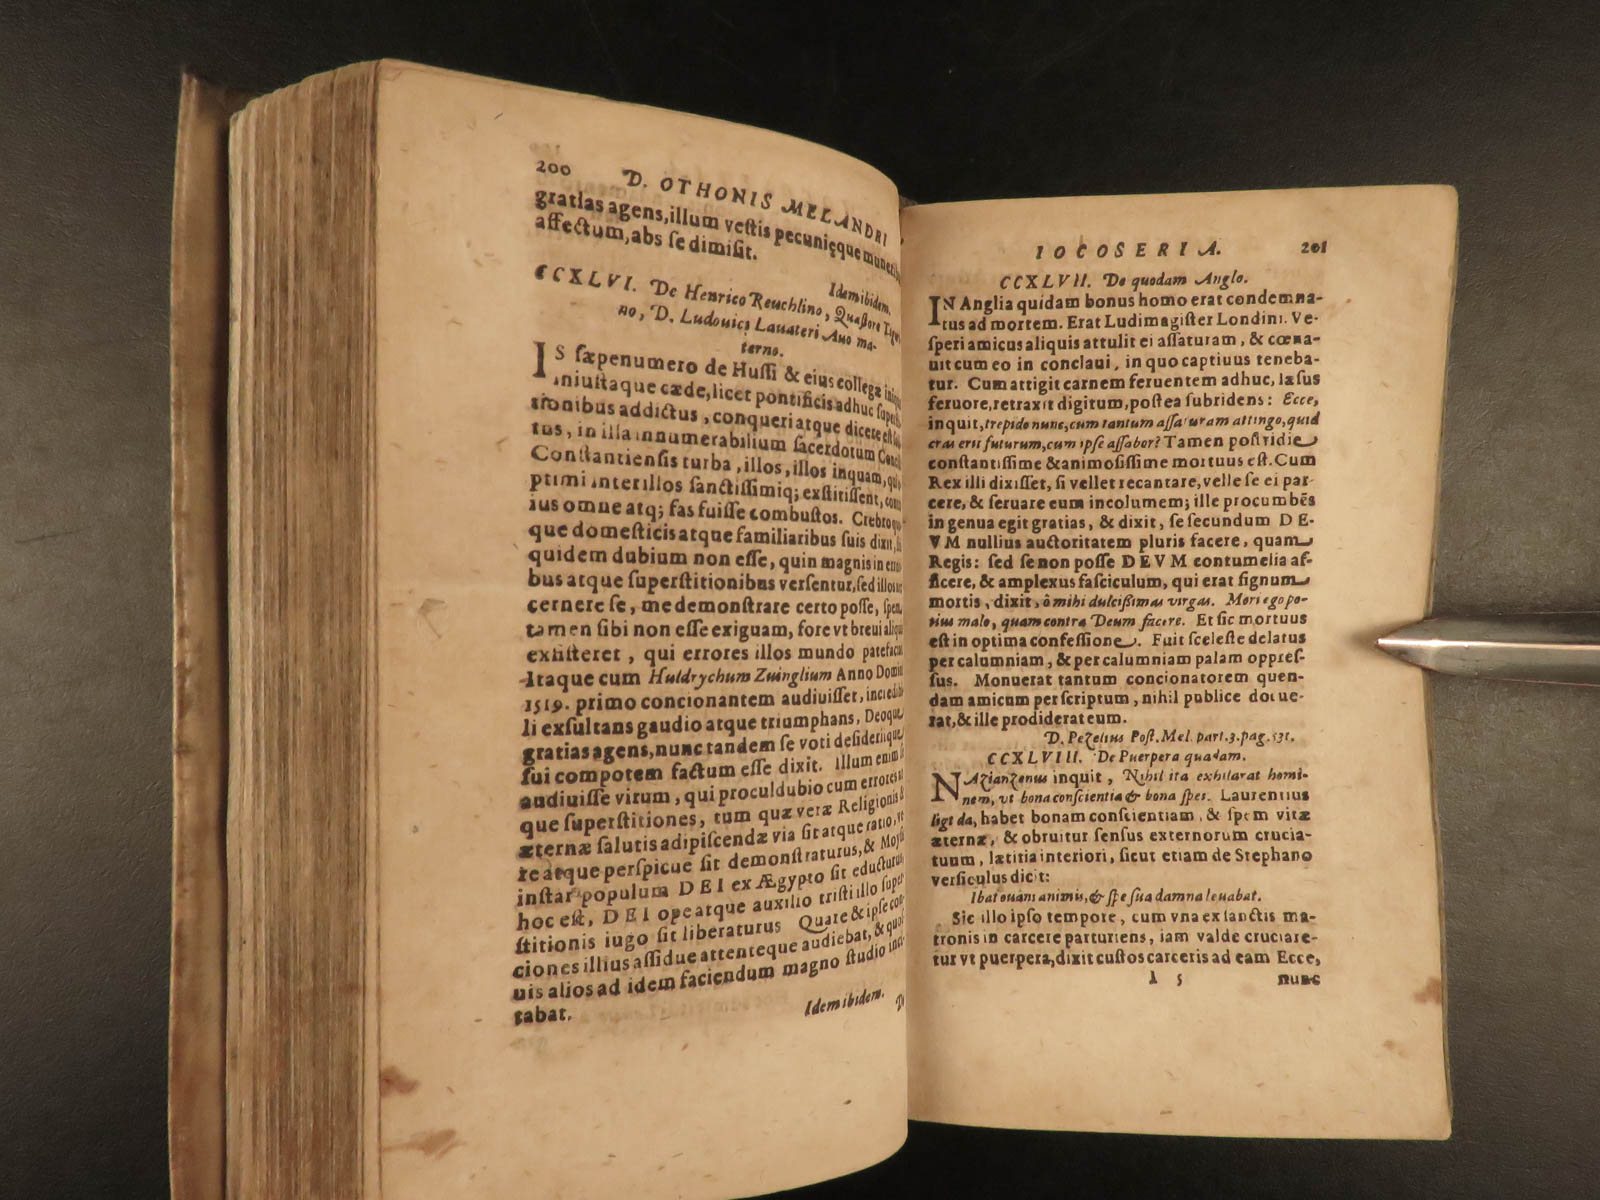 200 D. OTHONIS MELANDRI
gratias agens, illum vestis pecunięque
affectum, abs se dimisit.
Idem ibidem.
CCXLVI. De Henrico Reuchlino, Quæstore
no, D. Ludouici Lauateri Auo ma-
terno.
IS sæpenumero de Hussi & eius collegæ
iniustaque cæde, licet pontificis adhuc
tionibus addictus, conqueri atque dicere est
tus, in illa innumerabilium sacerdotum
Constantiensis turba, illos, illos inquam,
ptimi inter illos sanctissimiq; exstitissent,
ius omne atq; fas fuisse combustos. Crebro
que domesticis atque familiaribus suis dixit,
quidem dubium non esse, quin magnis in
bus atque superstitionibus versentur, sed illos
cernere se, me demonstrare certo posse,
tamen sibi non esse exiguam, fore vt breui
existeret, qui errores illos mundo
Itaque cum Huldrychum Zuinglium Anno
1519. primo concionantem audiuisset,
li exsultans gaudio atque triumphans, Deoque
gratias agens, nunc tandem se voti desideriique
sui compotem factum esse dixit. Illum enim
audiuisse virum, qui proculdubio cum errores
que superstitiones, tum quæ veræ Religionis &
æternæ salutis adipiscendæ via sit atque ratio,
re atque perspicue sit demonstraturus, &
instar populum DEI ex Ægypto sit educturus,
hoc est, DEI ope atque auxilio tristi illo super-
stitionis iugo sit liberaturus Quare & ipse con-
ciones illius assidue attenteque audiebat, &
uis alios ad idem faciendum magno studio inci-
tabat.
Idem ibidem.
IOCOSERIA. 201
CCXLVII. De quodam Anglo.
IN Anglia quidam bonus homo erat condemna-
tus ad mortem. Erat Ludimagister Londini. Ve-
speri amicus aliquis attulit ei assaturam, & cœna-
uit cum eo in conclaui, in quo captiuus teneba-
tur. Cum attigit carnem feruentem adhuc, læsus
feruore, retraxit digitum, postea subridens: Ecce,
inquit, trepido nunc, cum tantum assaturam attingo, quid
cras erit futurum, cum ipse assabor? Tamen postridie
constantissime & animosissime mortuus est. Cum
Rex illi dixisset, si vellet recantare, velle se ei par-
cere, & seruare eum incolumem; ille procumbẽs
in genua egit gratias, & dixit, se secundum DE-
VM nullius auctoritatem pluris facere, quam
Regis: sed se non posse DEVM contumelia af-
ficere, & amplexus fasciculum, qui erat signum
mortis, dixit, ô mihi dulcißimas virgas. Mori ego po-
tius malo, quam contra Deum facere. Et sic mortuus
est in optima confessione. Fuit sceleste delatus
per calumniam, & per calumniam palam oppres-
sus. Monuerat tantum concionatorem quen-
dam amicum per scriptum, nihil publice docue-
rat, & ille prodiderat eum.
D. Pezelius Post. Mel. part. 3. pag. 131.
CCXLVIII. De Puerpera quadam.
NAzianzenus inquit, Nihil ita exhilarat homi-
nem, vt bona conscientia & bona spes. Laurentius
habet bonam conscientiam, & spem vitæ
æternæ, & obruitur sensus externorum crucia-
tuum, lætitia interiori, sicut etiam de Stephano
versiculus dicit:
Ibat ouans animis, & spe sua damna leuabat.
Sic illo ipso tempore, cum vna ex sanctis ma-
tronis in carcere parturiens, iam valde cruciare-
tur vt puerpera, dixit custos carceris ad eam Ecce,
5 nunc